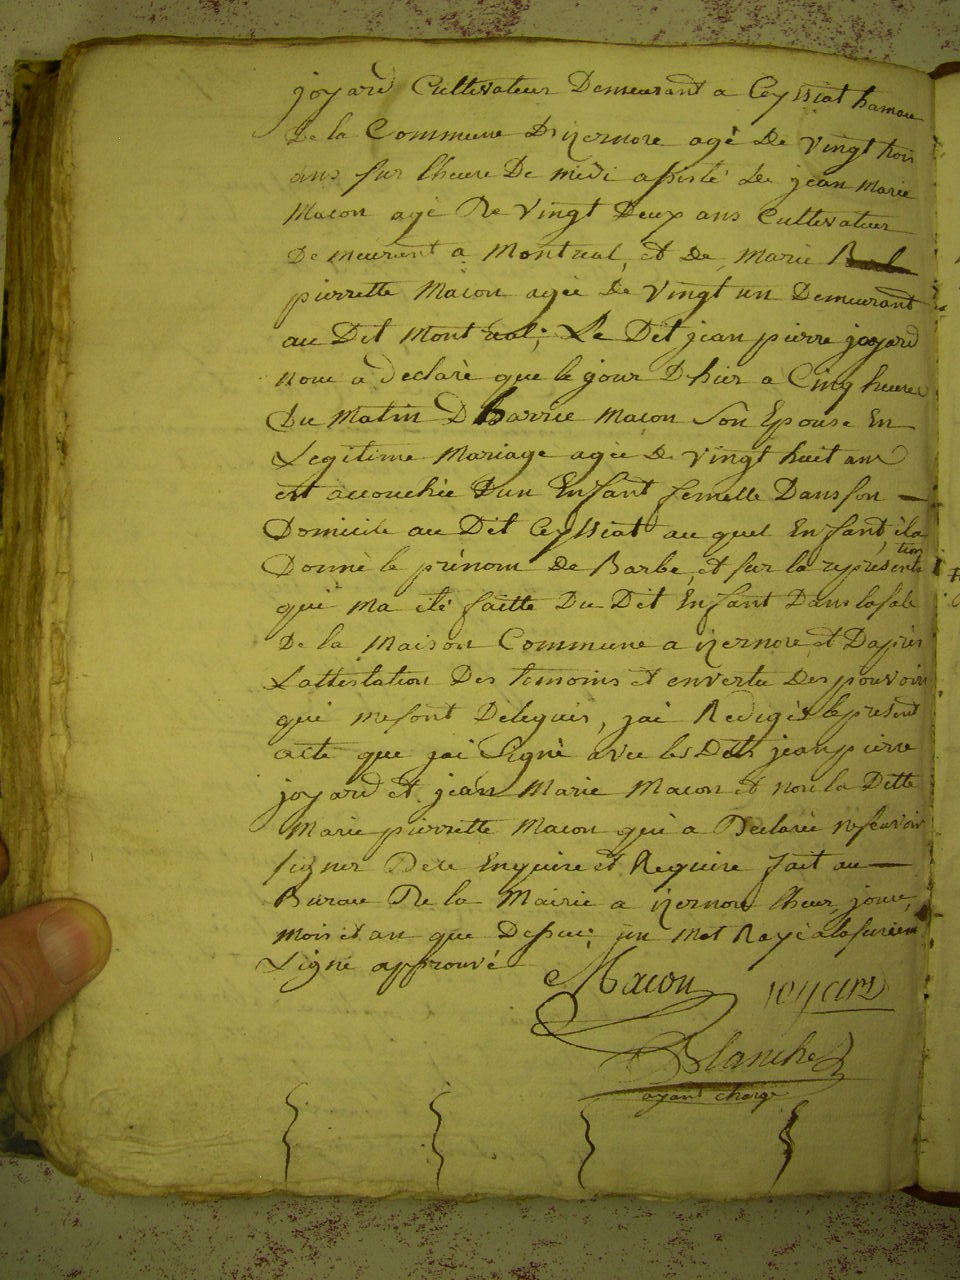 joyard Cultivateur Demeurant a Ceyssiat hamau
De la Commune D'izernore agé De vingt trois
ans sur lheure De midi assisté de jean Marie
Macon agé De Vingt Deux ans Cultivateur
Demeurant a Montreal, et de Marie
pierrette Macon agée De Vingt un Demeurant
au Dit Montreal; Le Dit jean pierre joyard
nous a declaré que le jour D'hier a Cinq heures
Du Matin Macon Son Epouse En
Legitime Mariage agée De vingt huit ans
est accouchée D'un Enfant femelle Dans son
Domicile au Dit Ceyssiat au quel Enfant, il a
Donné le prénom de Barbe, et sur la représentation
qui ma été faitte Du Dit Enfant Dans la sale
De la Maison Commune a izernore et Daprés
Lattestation Des temoins et en vertu Des pouvoirs
qui me sont Délegués, jai Redigés le présent
acte que jai Signé avec les Dits jean pierre
joyard et jean Marie Macon et non la Ditte
Marie pierrette Macon qui a Declarée ne scavoir
signer De ce Enquise et Requise fait au
Bureau De la Mairie a izernore lheur, jour,
mois et an que Dessus; un Mot Rayé a la
Ligne approuvé
Macon joyard
Blanchet
ayant charge